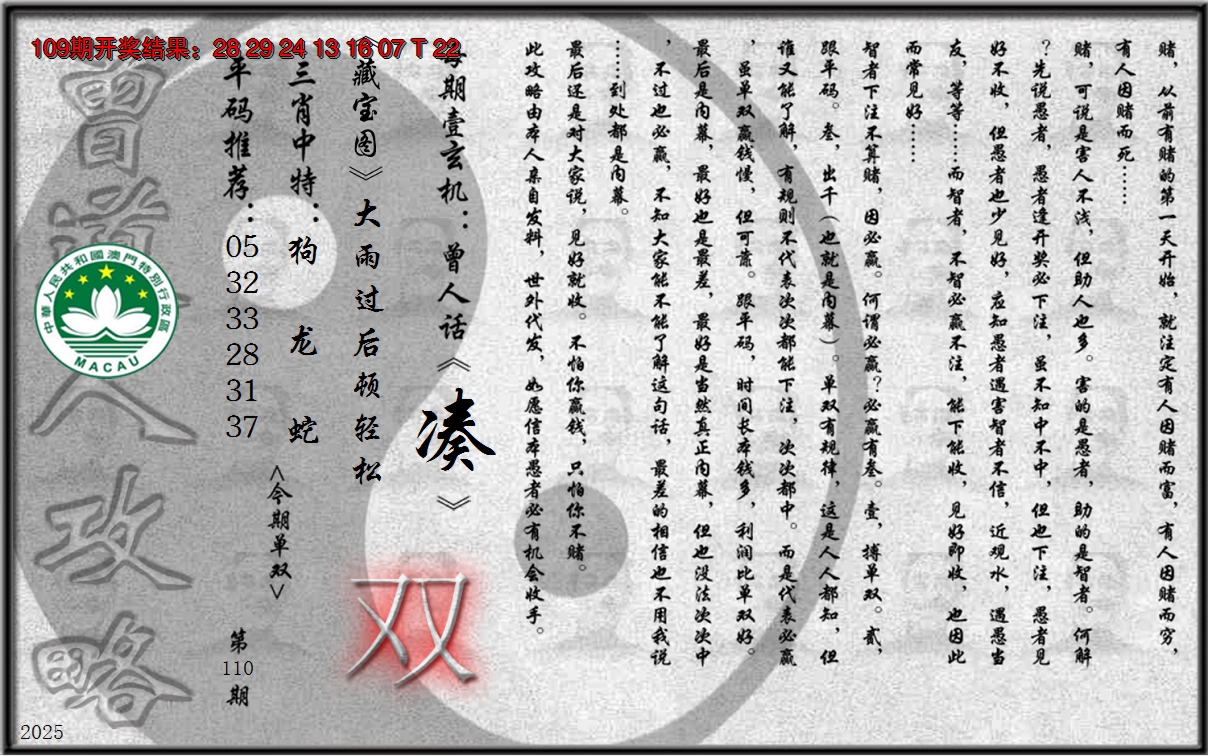 109期开奖结果：28 29 24 13 16 07 T 22
赌，从前有赌的第一天开始，就注定有人因赌而富，有人因赌而穷，
有人因赌而死……
赌，可说是害人不浅，但助人也多。害的是愚者，助的是智者。何解
？先说愚者，愚者逢开奖必下注，虽不知中不中，但也下注，愚者见
好不收，但愚者也少见好，应知愚者遇害智者不信，近观水，遇愚当
友，等等……而智者，不智必赢不注，能下能收，见好即收，也因此
而常见好……
智者下注不算赌，因必赢。何谓必赢？必赢有叁。壹，搏单双。贰，
跟平码。叁，出千（也就是内幕）。单双有规律，这是人人都知，但
谁又能了解，有规则不代表次次都能下注，次次都中。而是代表必赢
，虽单双赢钱慢，但可靠。跟平码，时间长本钱多，利润比单双好。
最后是内幕，最好也是最差，最好是当然真正内幕，但也没法次次中
，不过也必赢，不知大家能不能了解这句话，最差的相信也不用我说
……到处都是内幕。
最后还是对大家说，见好就收。不怕你赢钱，只怕你不赌。
此攻略由本人亲自发料，世外代发，如愿信本愚者必有机会收手。
每期壹玄机：曾人话《凑》
《藏宝图》大雨过后顿轻松
双
三肖中特：狗 龙 蛇
<今期单双>
平码推荐：05 32 33 28 31 37
第110期
曾道人攻略
中華人民共和國澳門特別行政區
MACAU
2025